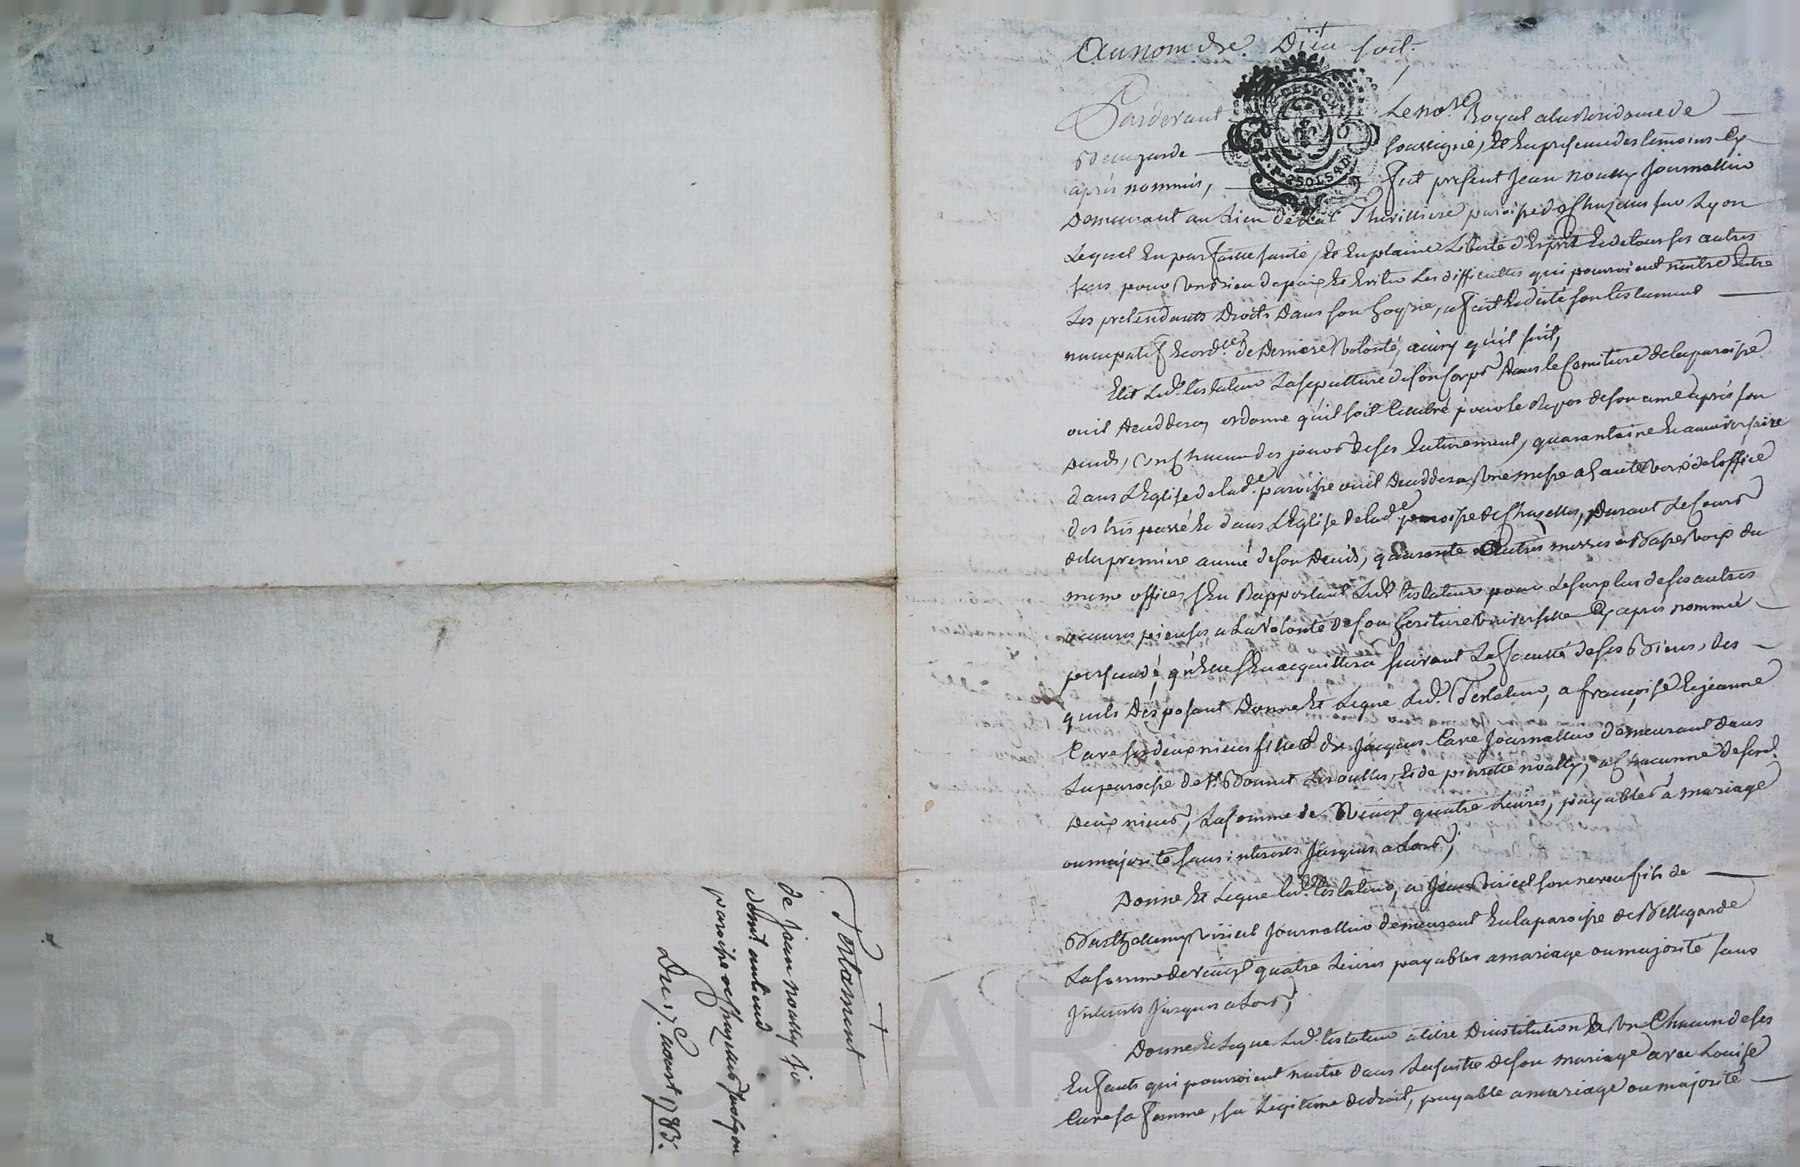 Au nom de Dieu soit
Pardevant Le no.re Royal a la Residance de
Bellegarde soussigné, et En presence des temoins Cy
après nommés, fut présent Jean noally Journallier
Demeurant au Lieu de La Thivilliere paroisse de Chazelles sur Lyon
Lequel En parfaitte santé, et En plaine Liberté d'Esprit Et de tous ses autres
sens pour Entretien de paix Et Eviter Les difficultés qui pourroient naitre Entre
Les pretendants Droits Dans son hoyrie, a fait Et dicté son testament
nuncupatif Et ord.re de Derniere Volonté, ainsy qu'il suit,
Elit Led. testateur La sepulture de son Corps dans le Cemitiere de la paroisse
ou il deceddera, ordonne qu'il soit Celebré pour le Repos de son ame après son
deceds, En Chacun des jours de ses Enterrement, quarantaine Et anniversaire
dans L'Eglise de lad.e paroisse ou il deceddera, Une messe a haute voix de L'office
des trépassé Et dans L'Eglise de lad.e paroisse de Chazelles, Durant Le Cours
de la premiere année de son deceds, quarante autres messes a Basse Voix du
meme office, s'En Rapportant Led. testateur pour Le surplus de ses autres
oeuvres pieuses a La Volonté de son heritiere universelle Cy après nommée
persuadé qu'Elle s'En acquittera suivant La faculté de ses Biens, Des
quels Disposant Donne Et Legue Led. Testateur, a françoise Et jeanne
Care ses deux nieces filles de Jacques Care Journallier demeurant dans
La paroisse de St. Bonnet Les oulles, Et de pierrette noally, a Chacunne de sesd.
Deux nieces, La somme de Vingt quatre Livres, payables a mariage
ou majorité sans interests Jusques a Lors,
Donne Et Legue Led. testateur, a Jean Viricel son neveu fils de
Barthelemy Viricel Journallier demeurant En la paroisse de Bellegarde
La somme de vingt quatre Livres payables a mariage ou majorité sans
Interests Jusques a Lors,
Donne Et Legue Led. testateur a titre D'institution Et Un Chacun de ses
Enfants qui pourroient naitre dans La suitte de son mariage avec Louise
Care sa femme, sa Legitime de droit, payable a mariage ou majorité
Testament
de jean noally jo.
demt. au lieud
paroisse de chazelles sur Lyon
Du 17e. aoust 1783.
Pascal CHARVERON